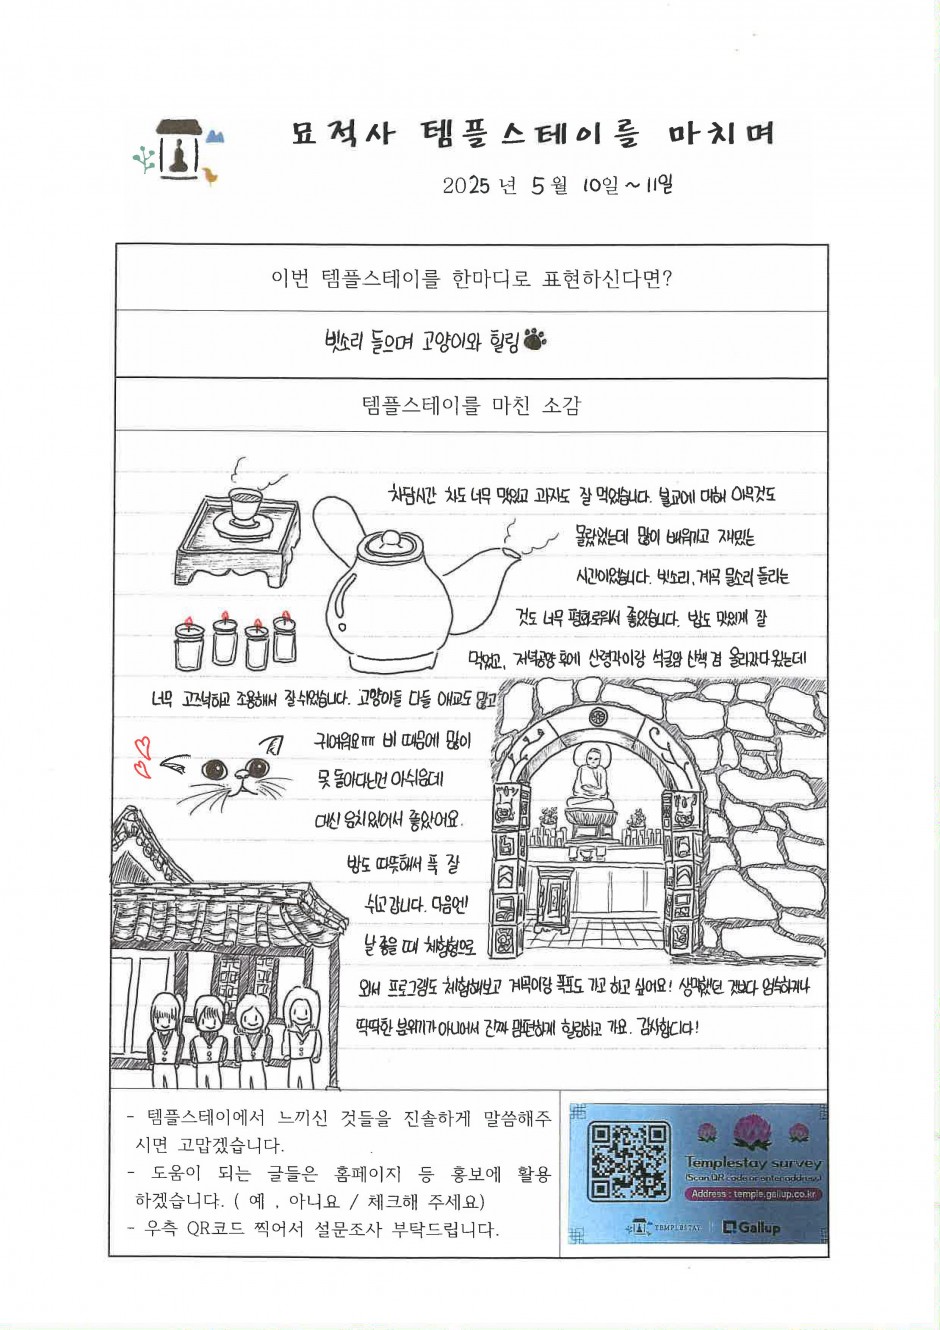 묘적사 템플스테이를 마치며
2025년 5월 10일~11일
이번 템플스테이를 한마디로 표현하신다면?
빗소리 들으며 고양이와 힐링
템플스테이를 마친 소감
차담시간 차도 너무 맛있고 과자도 잘 먹었습니다. 불교에 대해 아무것도
몰랐었는데 많이 배워가고 재밌는
시간이었습니다. 빗소리, 계곡 물소리 들리는
것도 너무 평화로워서 좋았습니다. 밥도 맛있게 잘
먹었고, 저녁공양 후에 산령각이랑 석굴암 산책 겸 올라갔다 왔는데
너무 고즈넉하고 조용해서 잘 쉬었습니다. 고양이들 다들 애교도 많고
귀여워요ㅠㅠ 비 때문에 많이
못 돌아다닌건 아쉬운데
대신 운치있어서 좋았어요.
방도 따뜻해서 푹 잘
쉬고 갑니다. 다음엔
날 좋을 때 체험형으로
와서 프로그램도 체험해보고 계곡이랑 폭포도 가고 하고 싶어요! 생각했던 것보다 엄숙하거나
딱딱한 분위기가 아니어서 진짜 맘편하게 힐링하고 가요. 감사합니다!
- 템플스테이에서 느끼신 것들을 진솔하게 말씀해주
시면 고맙겠습니다.
- 도움이 되는 글들은 홈페이지 등 홍보에 활용
하겠습니다. ( 예 , 아니요 / 체크해 주세요)
- 우측 QR코드 찍어서 설문조사 부탁드립니다.
Templestay survey
(Scan QR code or enter address)
Address : temple.gallup.co.kr
TEMPLESTAY
Gallup